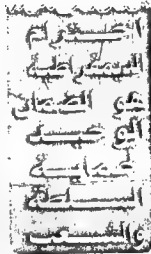 الديمقراطية
هو الضمان
الوحيد
لحماية
السلطة
والشعب